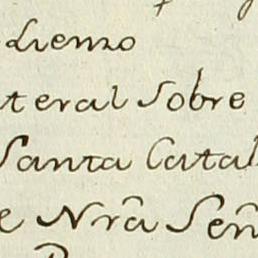 Lienzo
teral Sobre
Santa Catal
e Nrã Señ